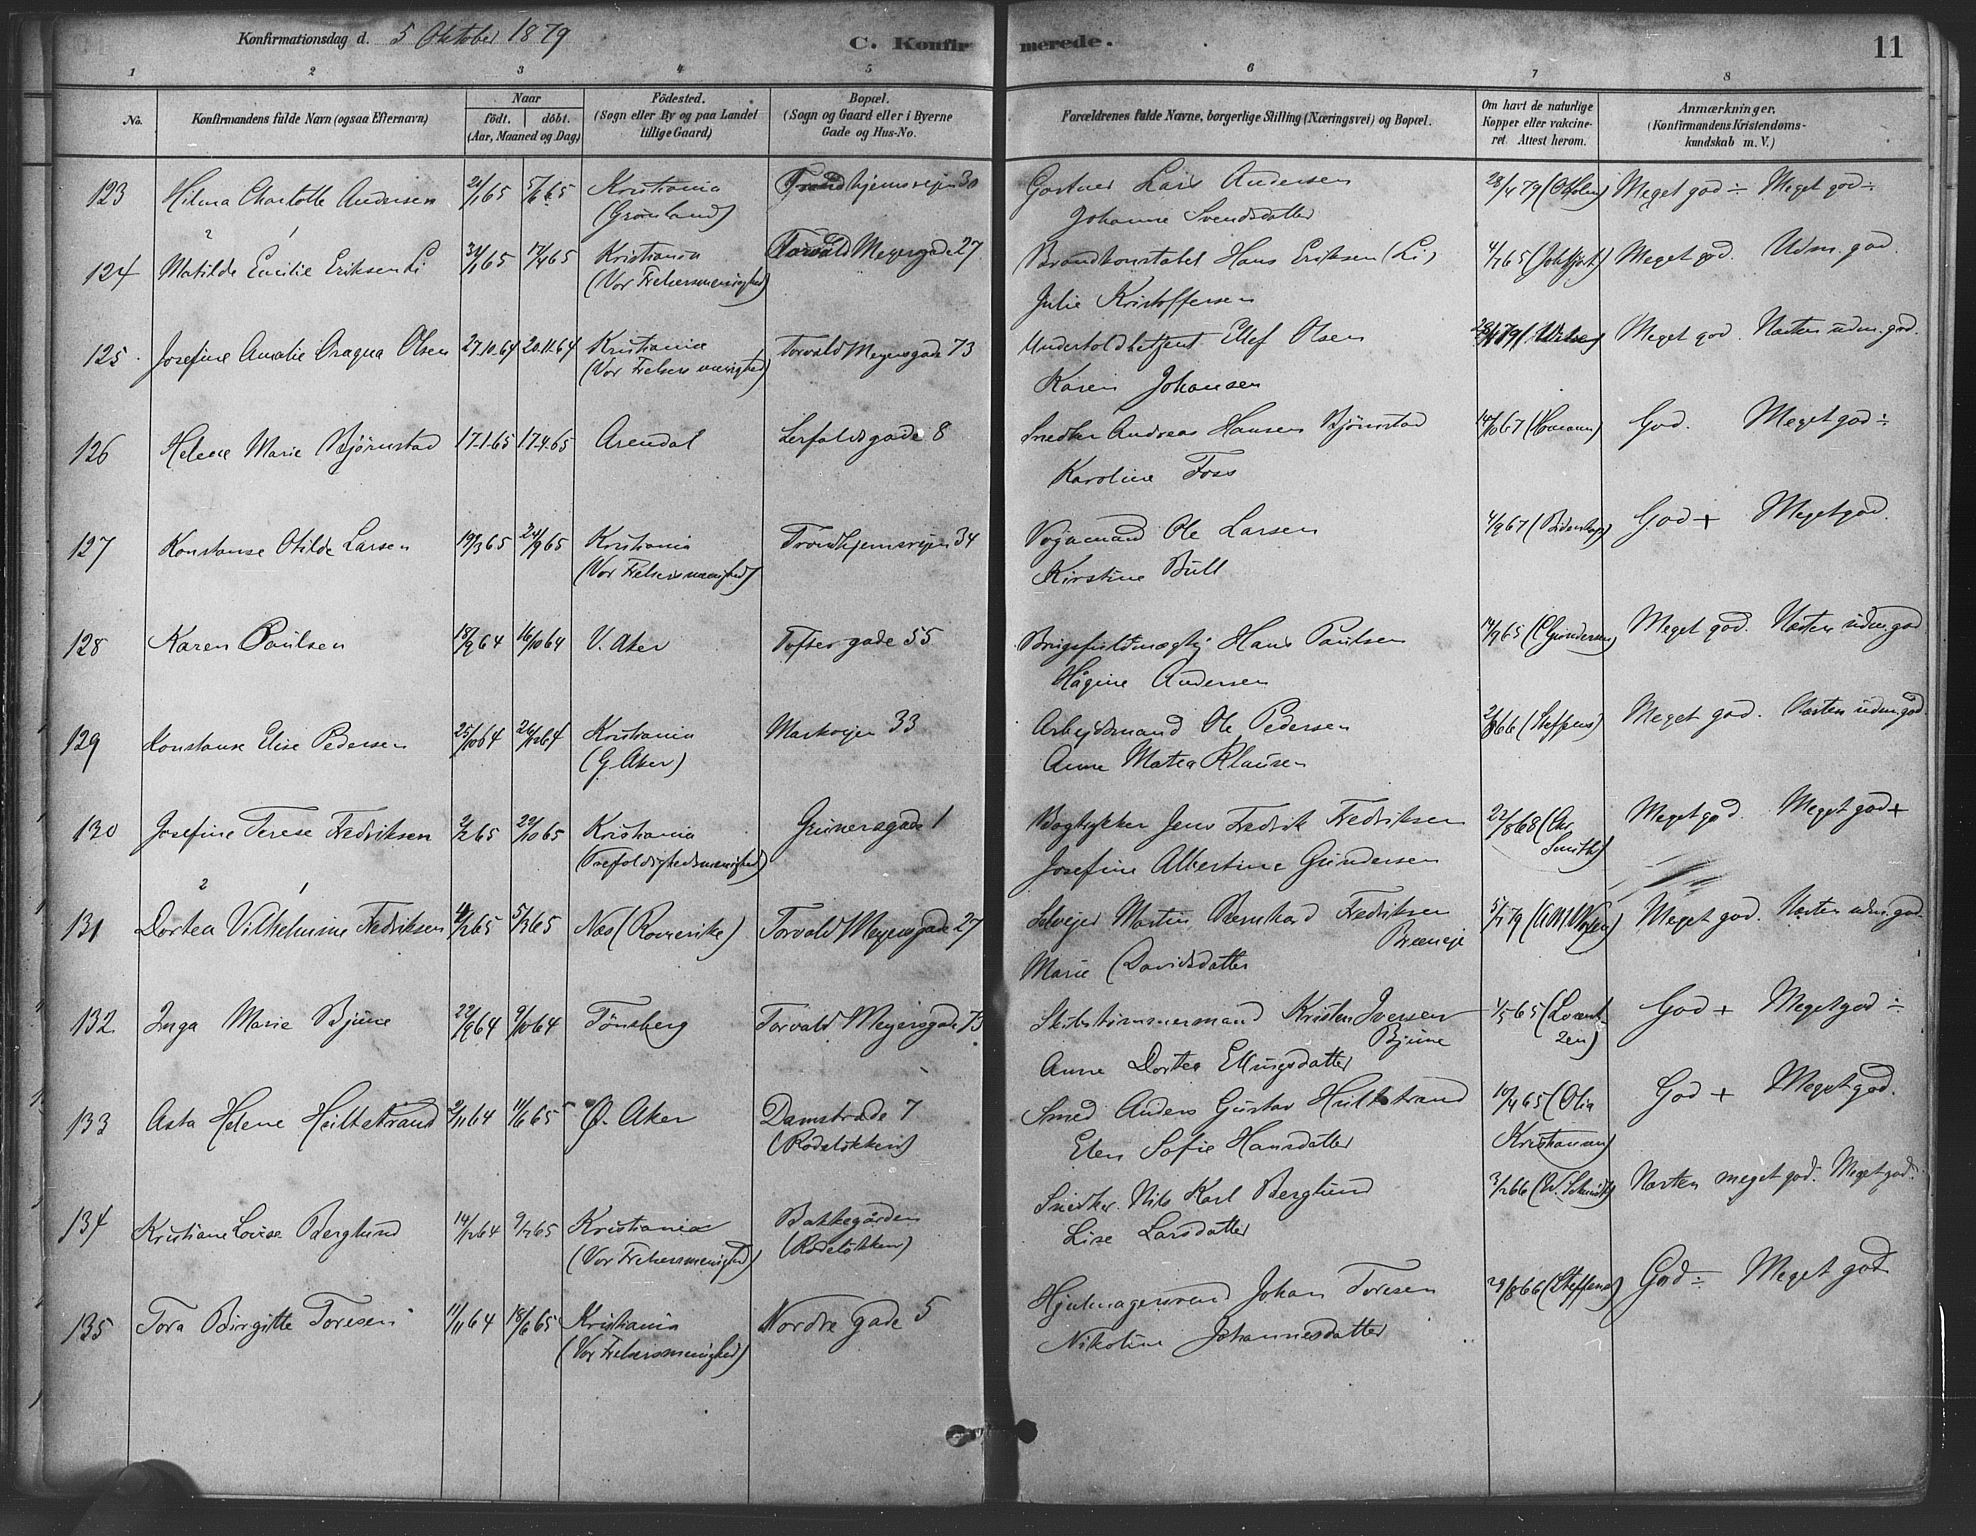 Konfirmationsdag d. 5 Oktober 1879
C. Konfirmerede.
11
1 2 3 4 5 6 7 8
No. Konfirmandens fulde Navn (ogsaa Efternavn) Naar födt. döbt. (Aar, Maaned og Dag) Födested. (Sogn eller By og paa Landet tillige Gaard) Bopæl. (Sogn og Gaard eller i Byerne Gade og Hus-No. Forældrenes fulde Navne, borgerlige Stilling (Næringsvei) og Bopæl. Om havt de naturlige Kopper eller vakcineret Attest herom. Anmærkninger. (Konfirmandens Kristendomskundskab m. V.)
123 Hilma Charlotte Andersen 2/1 65 5/6 65 Kristiania Trondhjemsvejen 30 Gartner Lars Andersen 28/4 79 (Otholm) Meget god ÷ Meget god ÷
(Grønland) Johanne Svendsdatter
2 1
124 Matilde Emilie Eriksen Li 31/1 65 17/4 65 Kristiania Torvald Meyersgade 27 Brandkonstabel Hans Eriksen (Li) 4/7 65 Meget god. Udm. god.
(Vor Frelsersmenighed) Julie Kristoffersen
125. Josefine Amalie Dragua Olsen 27.10.64 20.11.64 Kristiania Torvald Meyersgade 73 Undertoldbetjent Ellef Olsen Meget god Næsten udm. god.
(Vor Frelsers menighed) Karen Johansen
126 Helene Marie Bjørnstad 17.1.65 17.4.65 Arendal Lerfaldsgade 8 Snedker Andreas Hansen Bjørnstad 14/10 67 (Homann) God. Meget god ÷
Karoline Foss
127 Konstanse Otilde Larsen 19/3 65 24/9 65 Kristiania Trondhjemsvejen 34 Vognmand Ole Larsen 4/9 67 (Bidenkap) God + Meget god.
(Vor Frelsersmenighed) Kirstine Bull
128 Karen Paulsen 18/9 64 16/10 64 V. Aker Toftes gade 55 Brugsfuldmægtig Hans Paulsen 14/9 65 (Gundersen) Meget god. Næsten udm. god
Hågine Andersen
129 Konstanse Elise Pedersen 25/10 64 26/12 64 Kristiania Markvejen 33 Arbejdsmand Ole Pedersen 2/8 66 (Steffens) Meget god. Næsten udm. god.
(G. Aker) Anne Matea Klausen
130 Josefine Terese Fredriksen 2/2 65 29/10 65 Kristiania Grünersgade 1 Bogtrykker Jens Fredrik Fredriksen 22/8 68 (Chr. Meget god. Meget god +
(Trefoldighedsmenighed) Josefine Albertine Gundersen Smith)
2 1
131 Dortea Vilhelmine Fredriksen 5/3 65 Næs (Romerike) Torvald Meyersgade 27 Selvejer Martin Bernhard Fredriksen 5/7 79 Meget god. Næsten udm. god.
Bræneje
Marie Davidsdatter
132 Inga Marie Bjune 29/9 64 9/10 64 Tønsberg Torvald Meyersgade 73 Skibstømmermand Kristen Iversen 1/5 65 (Lorent God + Meget god ÷
Bjune zen)
Anne Dortea Ellingsdatter
133 Asta Helene Hiltestrand 9/11 64 11/6 65 Ø. Aker Damstræde 7 Smed Anders Gustav Hiltestrand 10/4 65 (Olia God + Meget god.
(Rodeløkken) Elen Sofie Hansdatter Kristiansen)
134 Kristiane Lovise Berglund 14/12 64 9/7 65 Kristiania Bakkegården Snedker Nils Karl Berglund 3/2 66 (W. Schmidt) Næsten meget god. Meget god.
(Vor Frelsersmenighed) (Rodeløkken) Lise Larsdatter
135 Tora Birgitte Toresen 11/11 64 18/6 65 Kristiania Nordre gade 5 Hjulmagersvend Johan Toresen 29/8 66 (Steffens) God ÷ Meget god
(Vor Frelsersmenighed) Nikoline Johannesdatter